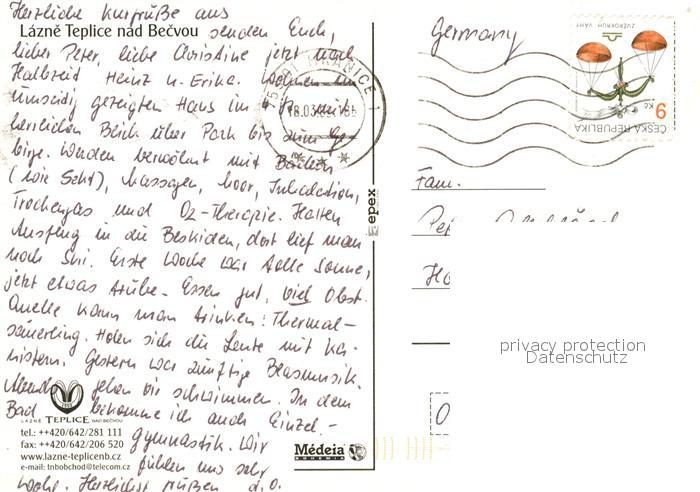 Herzliche Kurgrüße aus
Lázně Teplice nad Bečvou
senden Euch,
lieber Peter, liebe Christine jetzt nach
Halbzeit Heinz u. Erika. Wohnen im
umseitig gezeigten Haus im mit
herrlichen Blick über Park bis zum Ge-
birge. Werden verwöhnt mit Bädern
(wie Sekt), Massagen, Moor, Inhalation,
Trockengas und O2-Therapie. Hatten
Ausflug in die Beskiden, dort lief man
noch Ski. Erste Woche war tolle Sonne,
jetzt etwas trübe. Essen gut, viel Obst.
Quelle kann man trinken: Thermal-
säuerling. Holen sich die Leute mit Ka-
nistern. Gestern war zünftige Blasmusik.
Abends gehen wir schwimmen. In dem
Bad bekomme ich auch Einzel-
gymnastik. Wir
fühlen uns sehr
wohl. Herzlichst grüßen d.O.
LÁZNĚ TEPLICE NAD BEČVOU
tel.: ++420/642/281 111
fax: ++420/642/206 520
www.lazne-teplicenb.cz
e-mail: tnbobchod@telecom.cz
Médeia
BOHEMIA
epex
HRANICE 1
18.03
Germany
ZVĚROKRUH VÁHY
9 Kč
ČESKÁ REPUBLIKA
Fam.
privacy protection
Datenschutz